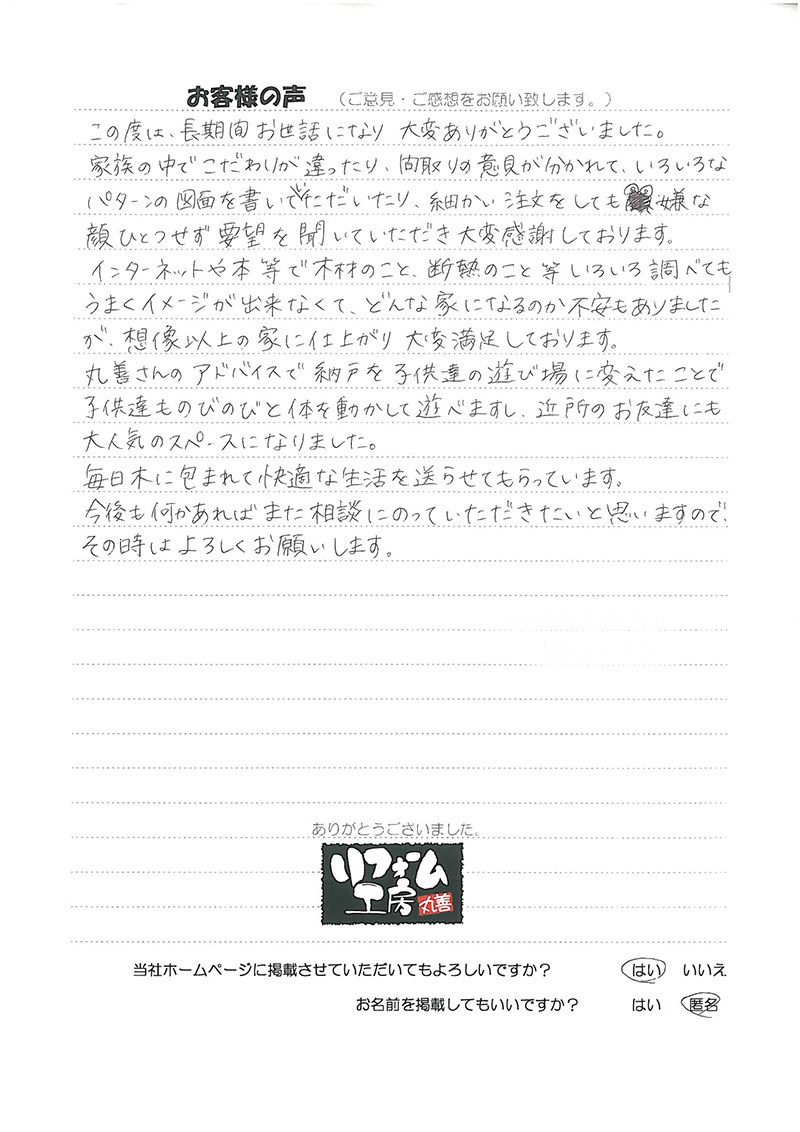 お客様の声 （ご意見・ご感想をお願い致します。）
この度は、長期間お世話になり 大変ありがとうございました。
家族の中でこだわりが違ったり、間取りの意見が分かれて、いろいろな
パターンの図面を書いていただいたり、細かい注文をしても嫌な
顔ひとつせず要望を聞いていただき大変感謝しております。
インターネットや本等で木材のこと、断熱のこと等いろいろ調べても
うまくイメージが出来なくて、どんな家になるのか不安もありました
が、想像以上の家に仕上がり 大変満足しております。
丸善さんのアドバイスで納戸を子供達の遊び場に変えたことで
子供達ものびのびと体を動かして遊べますし、近所のお友達にも
大人気のスペースになりました。
毎日木に包まれて快適な生活を送らせてもらっています。
今後も何かあればまた相談にのっていただきたいと思いますので、
その時はよろしくお願いします。
ありがとうございました。
リフォーム
工房 丸善
当社ホームページに掲載させていただいてもよろしいですか？ はい いいえ
お名前を掲載してもいいですか？ はい 匿名